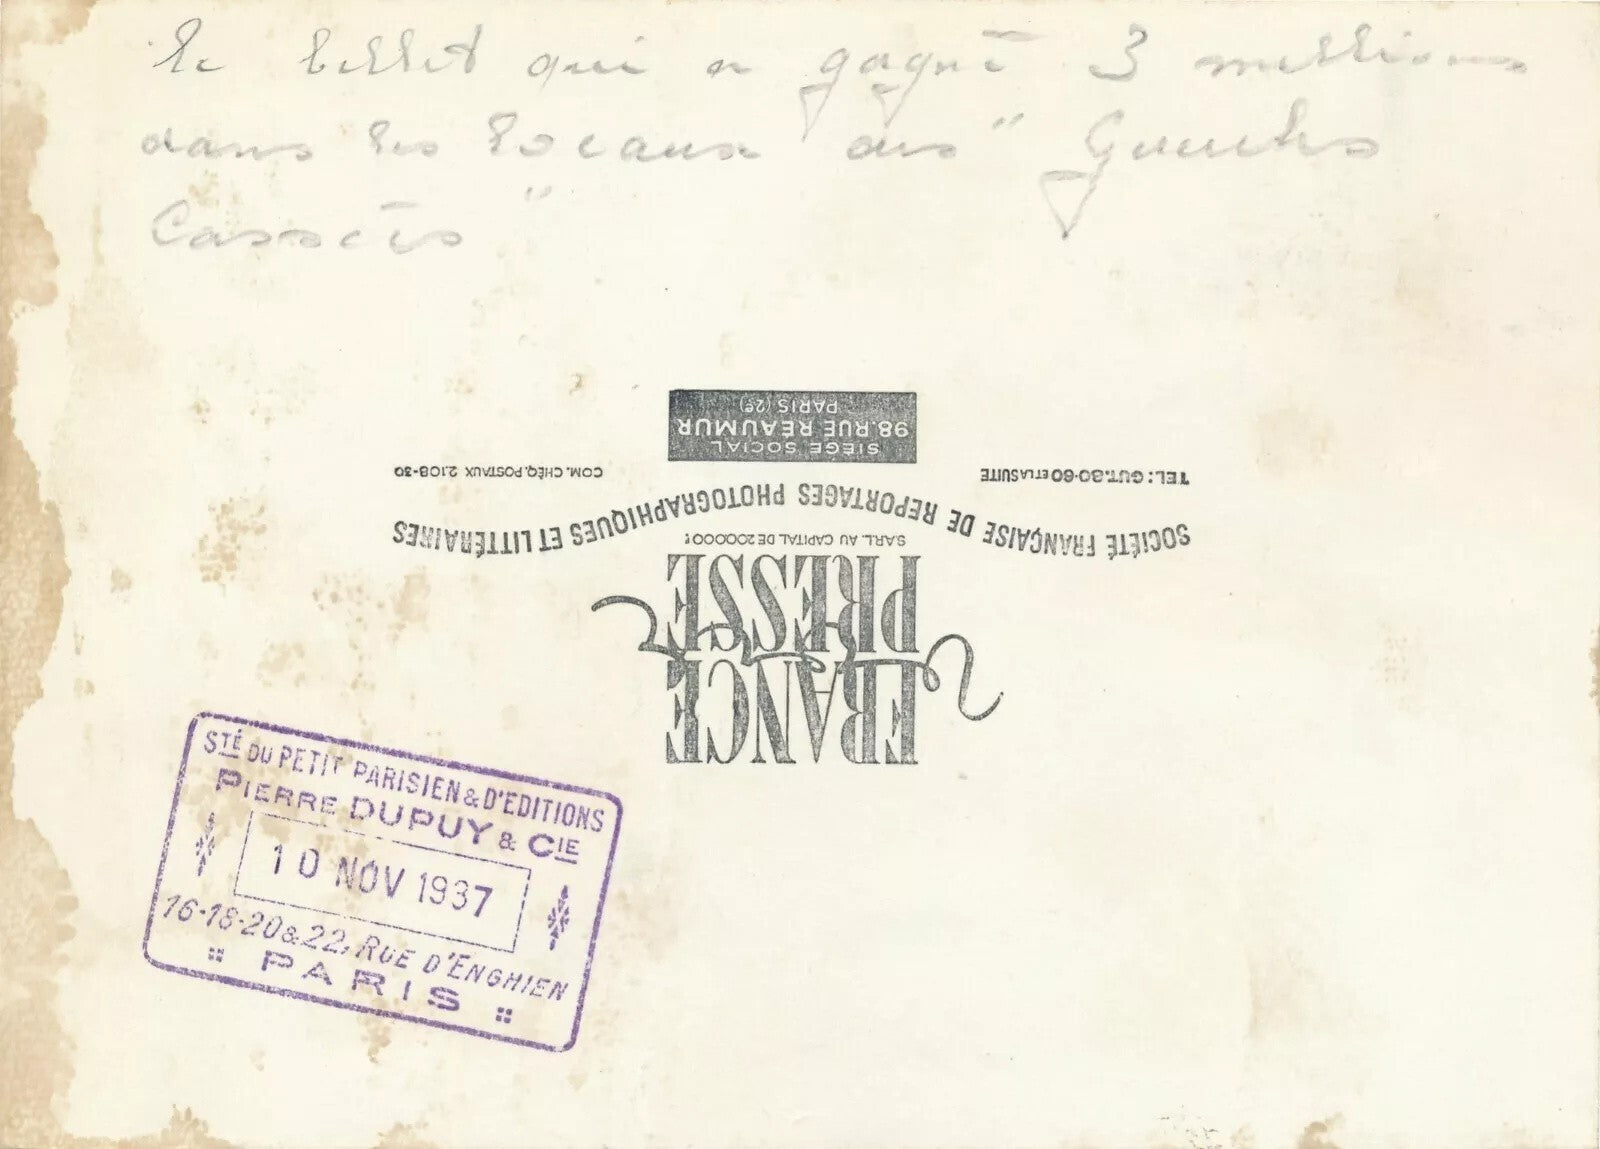 le billet qui a gagné 3 millions
dans les locaux des "Gueules
Cassées"
SIÈGE SOCIAL
98.RUE RÉAUMUR
PARIS (2e)
TEL: GUT.80-60 ET LA SUITE
COM. CHÉQ. POSTAUX 2.108-30
SOCIÉTÉ FRANÇAISE DE REPORTAGES PHOTOGRAPHIQUES ET LITTÉRAIRES
S.A.R.L. AU CAPITAL DE 200.000f
FRANCE
PRESSE
STÉ DU PETIT PARISIEN & D'EDITIONS
PIERRE DUPUY & CIE
10 NOV 1937
16-18-20 & 22, RUE D'ENGHIEN
PARIS